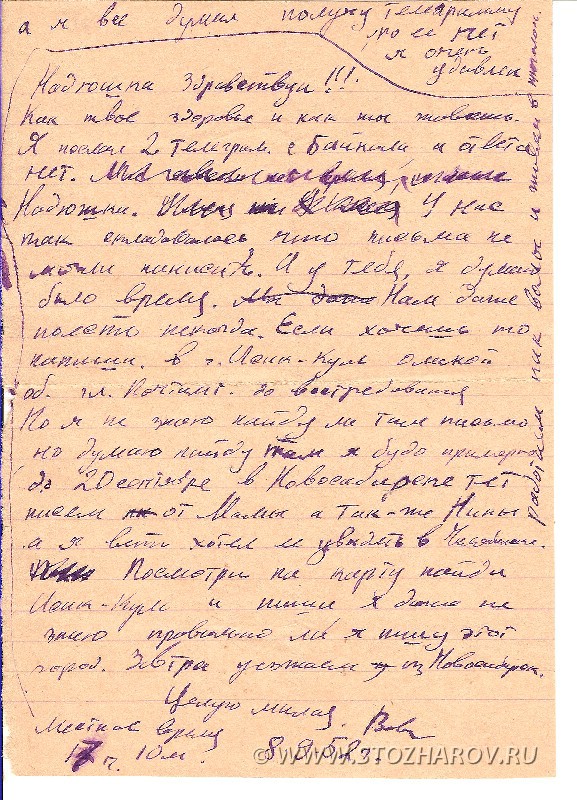 а я все думал получу телеграмму
но ее нет
я очень
удивлен
Надюшка здравствуй!!!
Как твое здоровье и как ты живешь.
Я послал 2 телеграм. с Байкала и авета
нет.
Надюшки. У нас
так складовалось что письма не
могли написать. И у тебя, я думаю
было время. Нам даже
поесть некогда. Если хочешь то
напиши. в г. Исик-Куль омской
об. гл. Почтамт. до востребования
Но я не знаю найду ли там письмо
но думаю найду там я буду примерно
до 20 сентября в Новосибирске нет
писем от Мамы а так-же Нины
а я ведь хотел и увидеть в
Посмотри на карту найди
Исик-Куль и пиши я даже не
знаю правильно ли я пишу этот
город. Завтра уезжаем из Новосибирск.
Целую милая. Вова
Местное время
17 ч. 10 м. 8 9 58 г.
работаем как валы и живем в
© WWW.STOZHAROV.RU